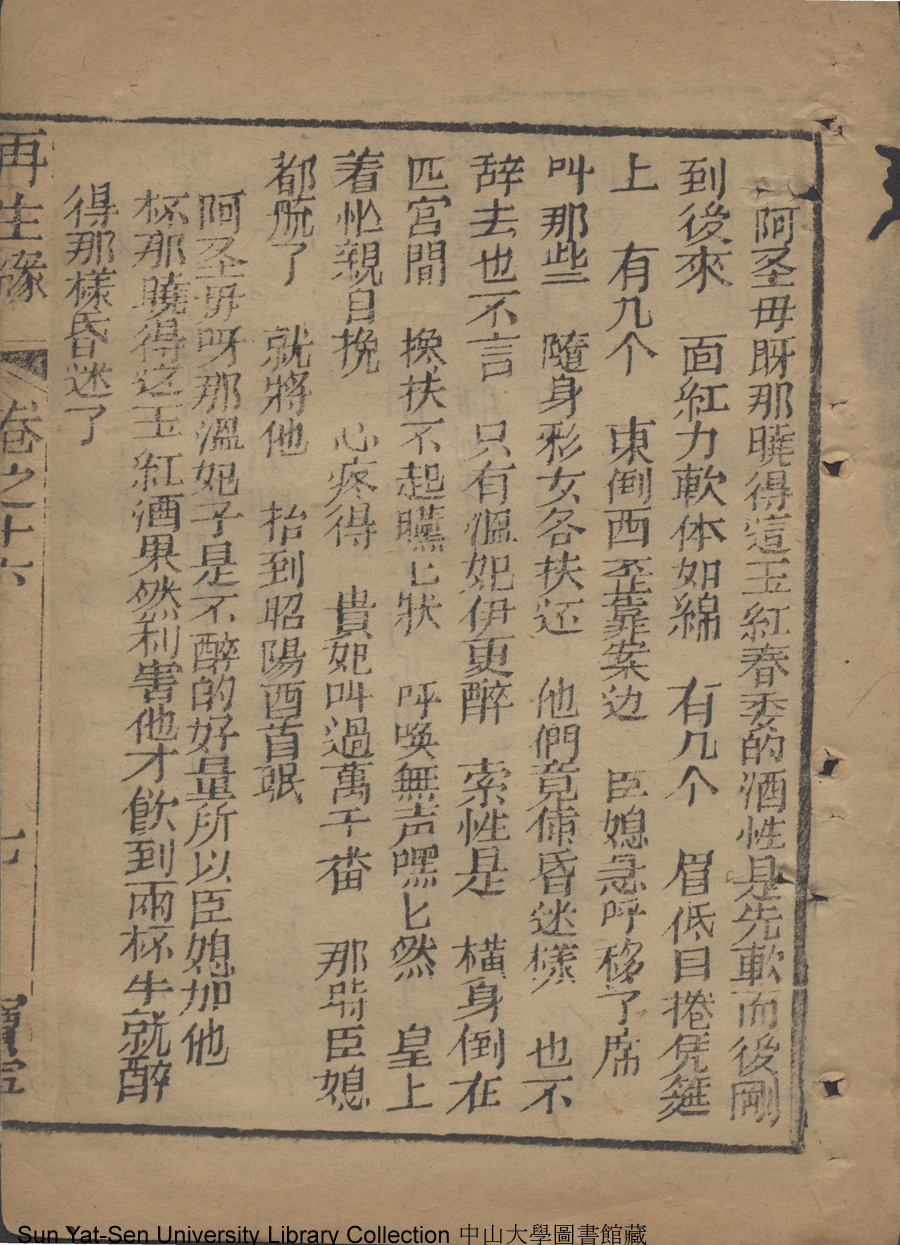 阿圣毋呀那曉得這玉紅春委的酒性是先軟而後剛
到後來 面紅力軟体如綿 有几个 眉低目捲凭筵
上 有几个 東倒西歪靠案边 臣媳急呼移了席
叫那些 隨身彩女各扶还 他們竟俱昏迷樣 也不
辞去也不言 只有溫妃伊更醉 索性是 橫身倒在
匹宮間 搀扶不起醺匕狀 呼喚無声嘿匕然 皇上
着忙親自挽 心疼得 貴妃叫過萬千畨 那時臣媳
都慌了 就將他 抬到昭陽酉首眠
阿圣毋呀那溫妃子是不醉的好量所以臣媳加他
杯那曉得这玉紅酒果然利害他才飲到兩杯半就醉
得那樣昏迷了
再生緣 卷之十六 七 寶寕
Sun Yat-Sen University Library Collection 中山大學圖書館藏